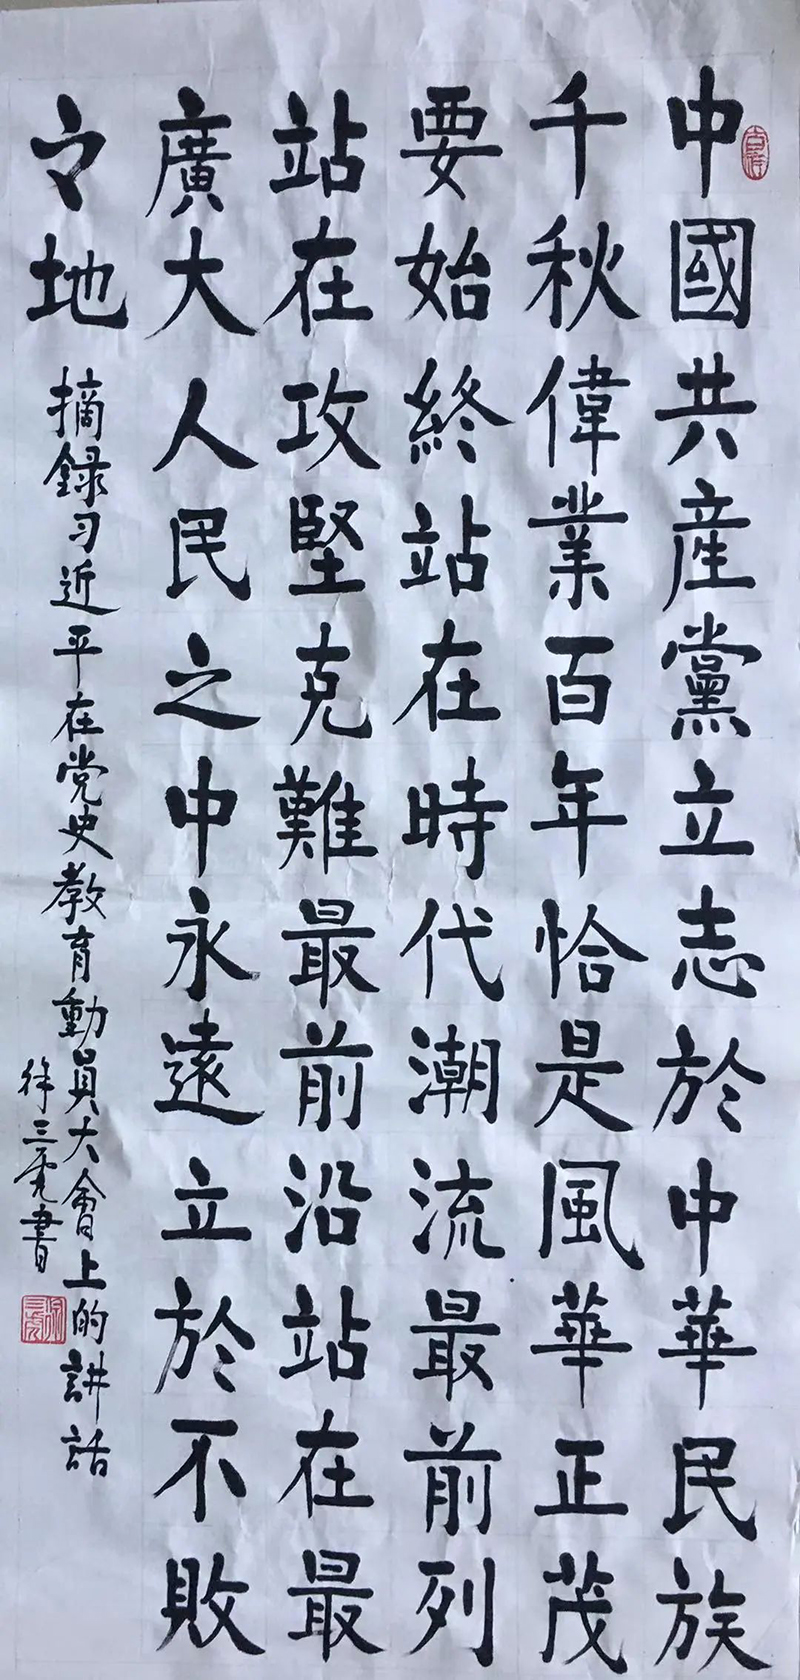 中國共產黨立志於中華民族
千秋偉業百年恰是風華正茂
要始終站在時代潮流最前列
站在攻堅克難最前沿站在最
廣大人民之中永遠立於不敗
之地
摘録习近平在党史教育動員大會上的講話
徐三虎書